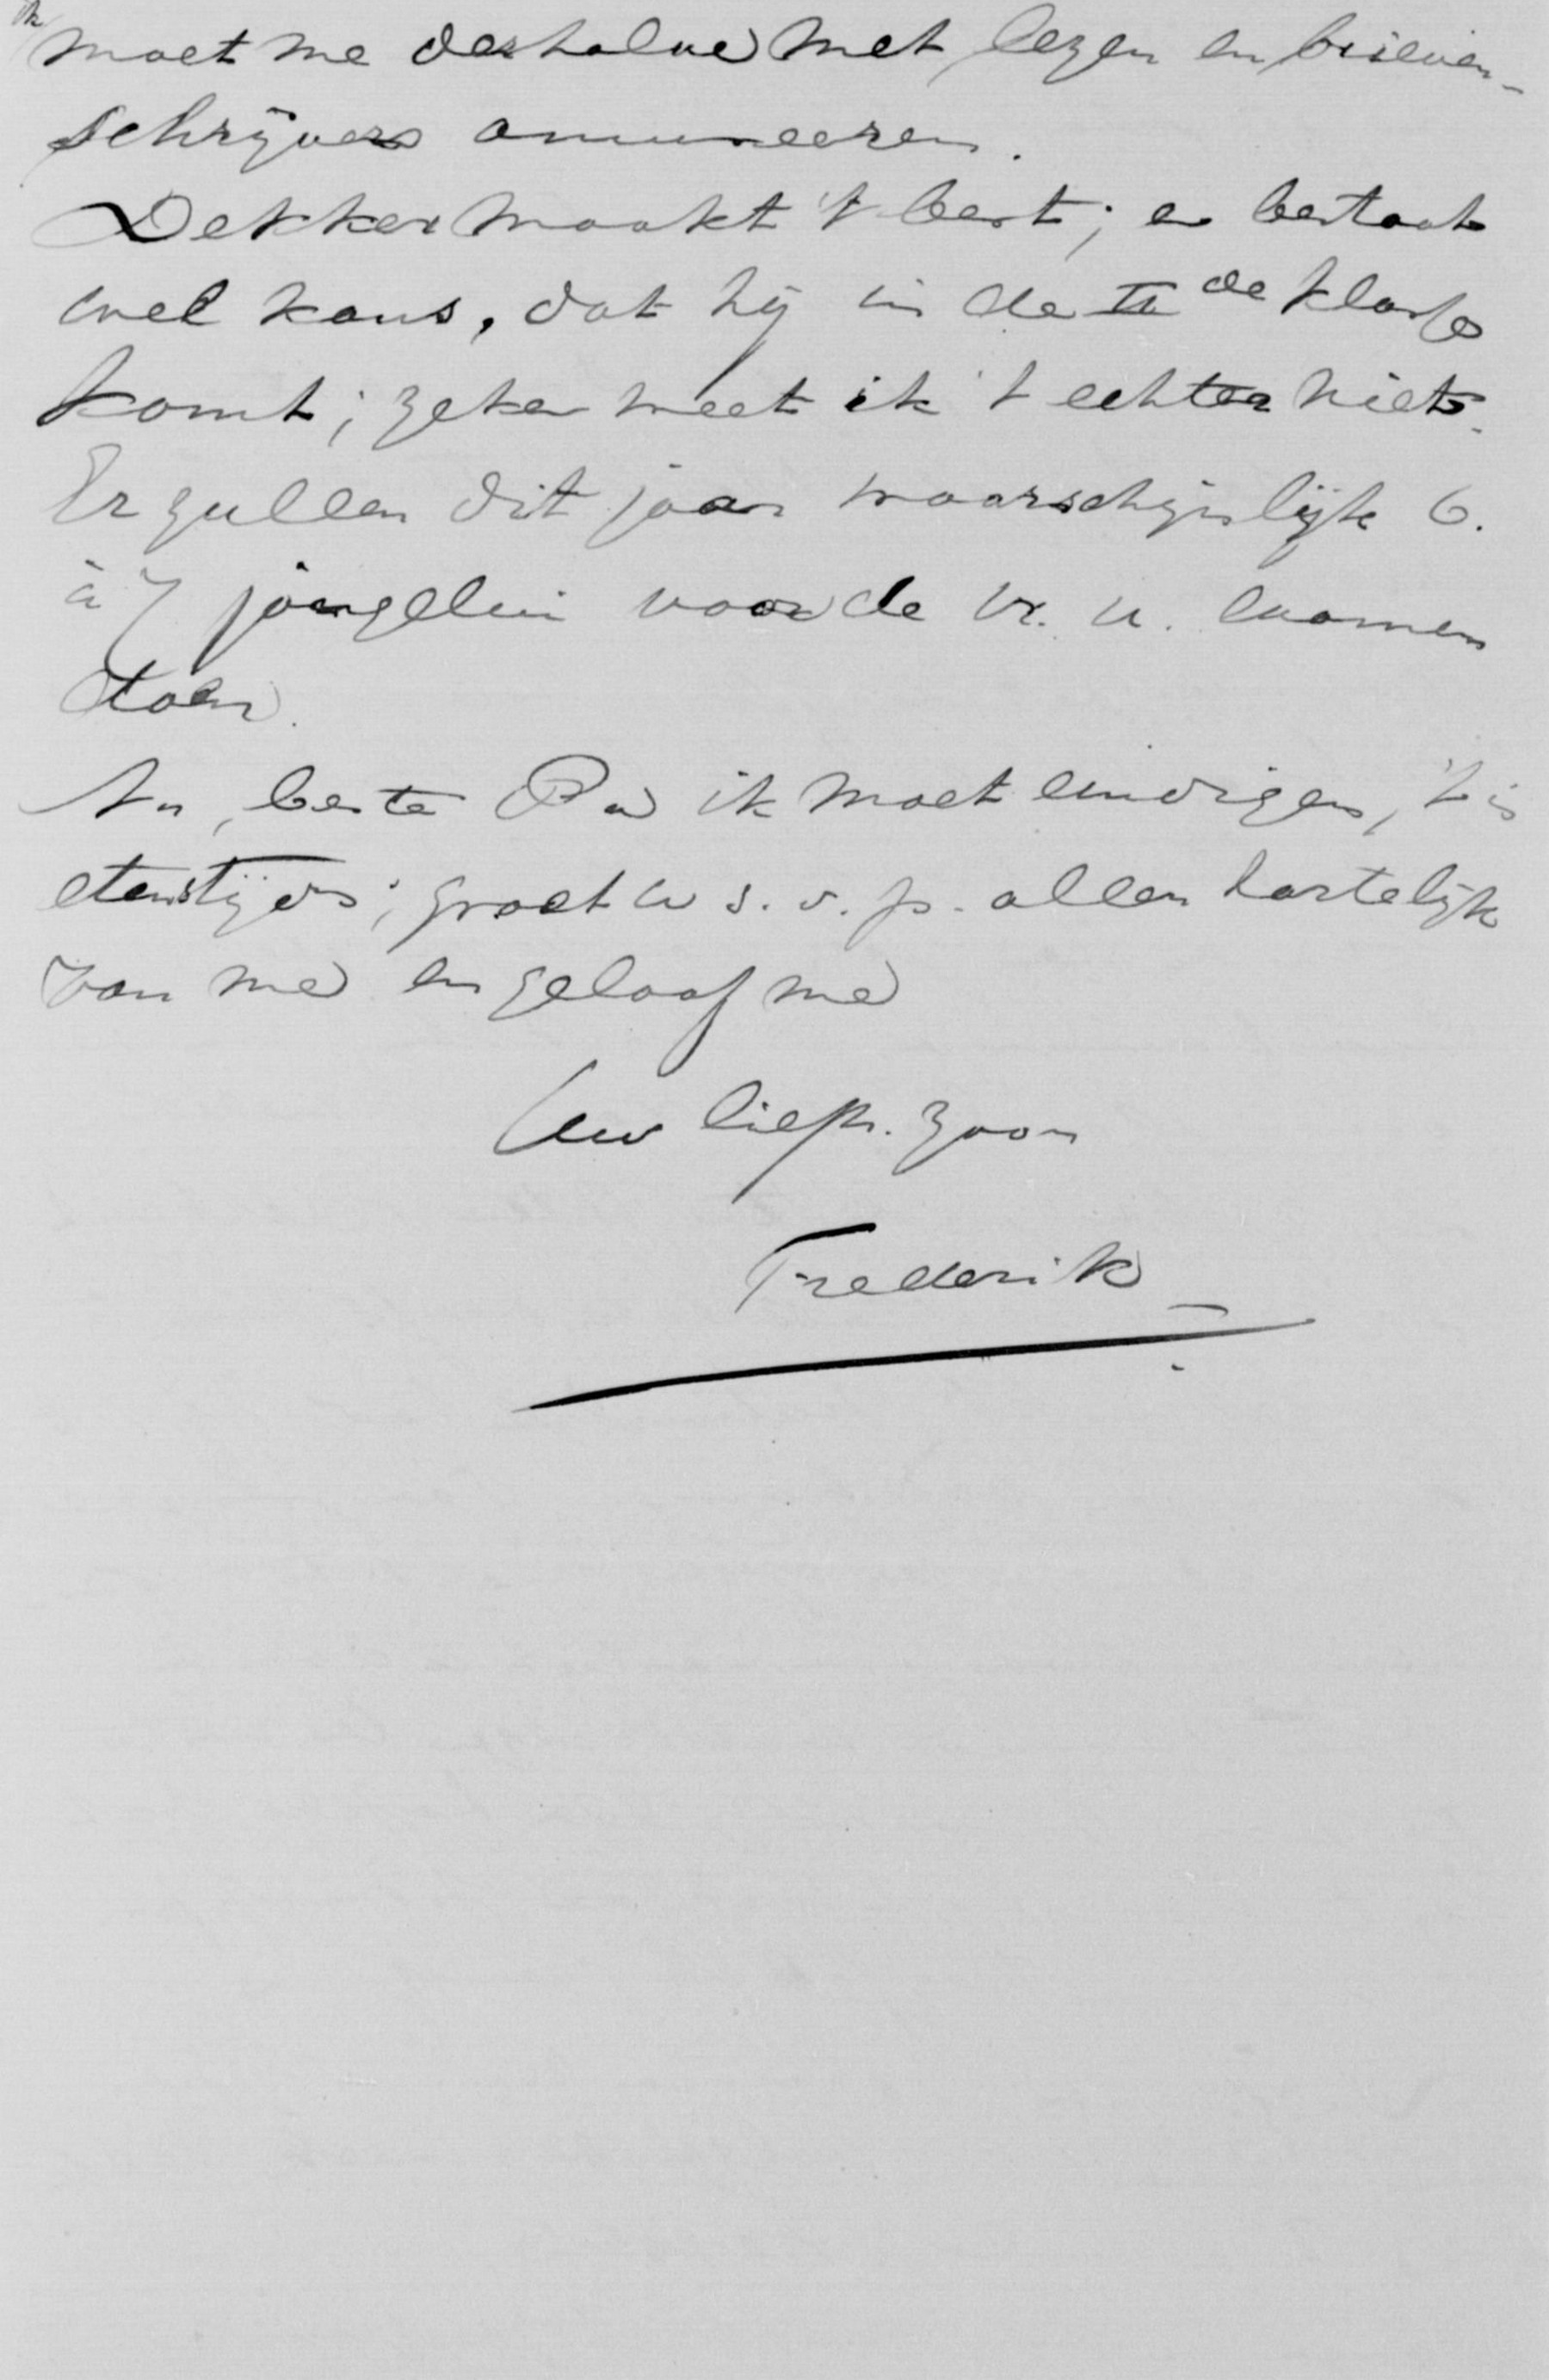 ik moet me derhalve met lezen en brieven-
schrijven amuseeren.
Dekker maakt 't best; er bestaat
wel kans, dat hij in de IIde klasse
komt; zeker weet ik 't echter niet.
Er zullen dit jaar waarschijnlijk 6.
à 7 jongelui voor de examen
doen.
Nu, beste Pa ik moet eindigen, 't is
etenstijd; groet u s.v.p. allen hartelijk
van me en geloof me
Uw liefh. zoon
Frederik